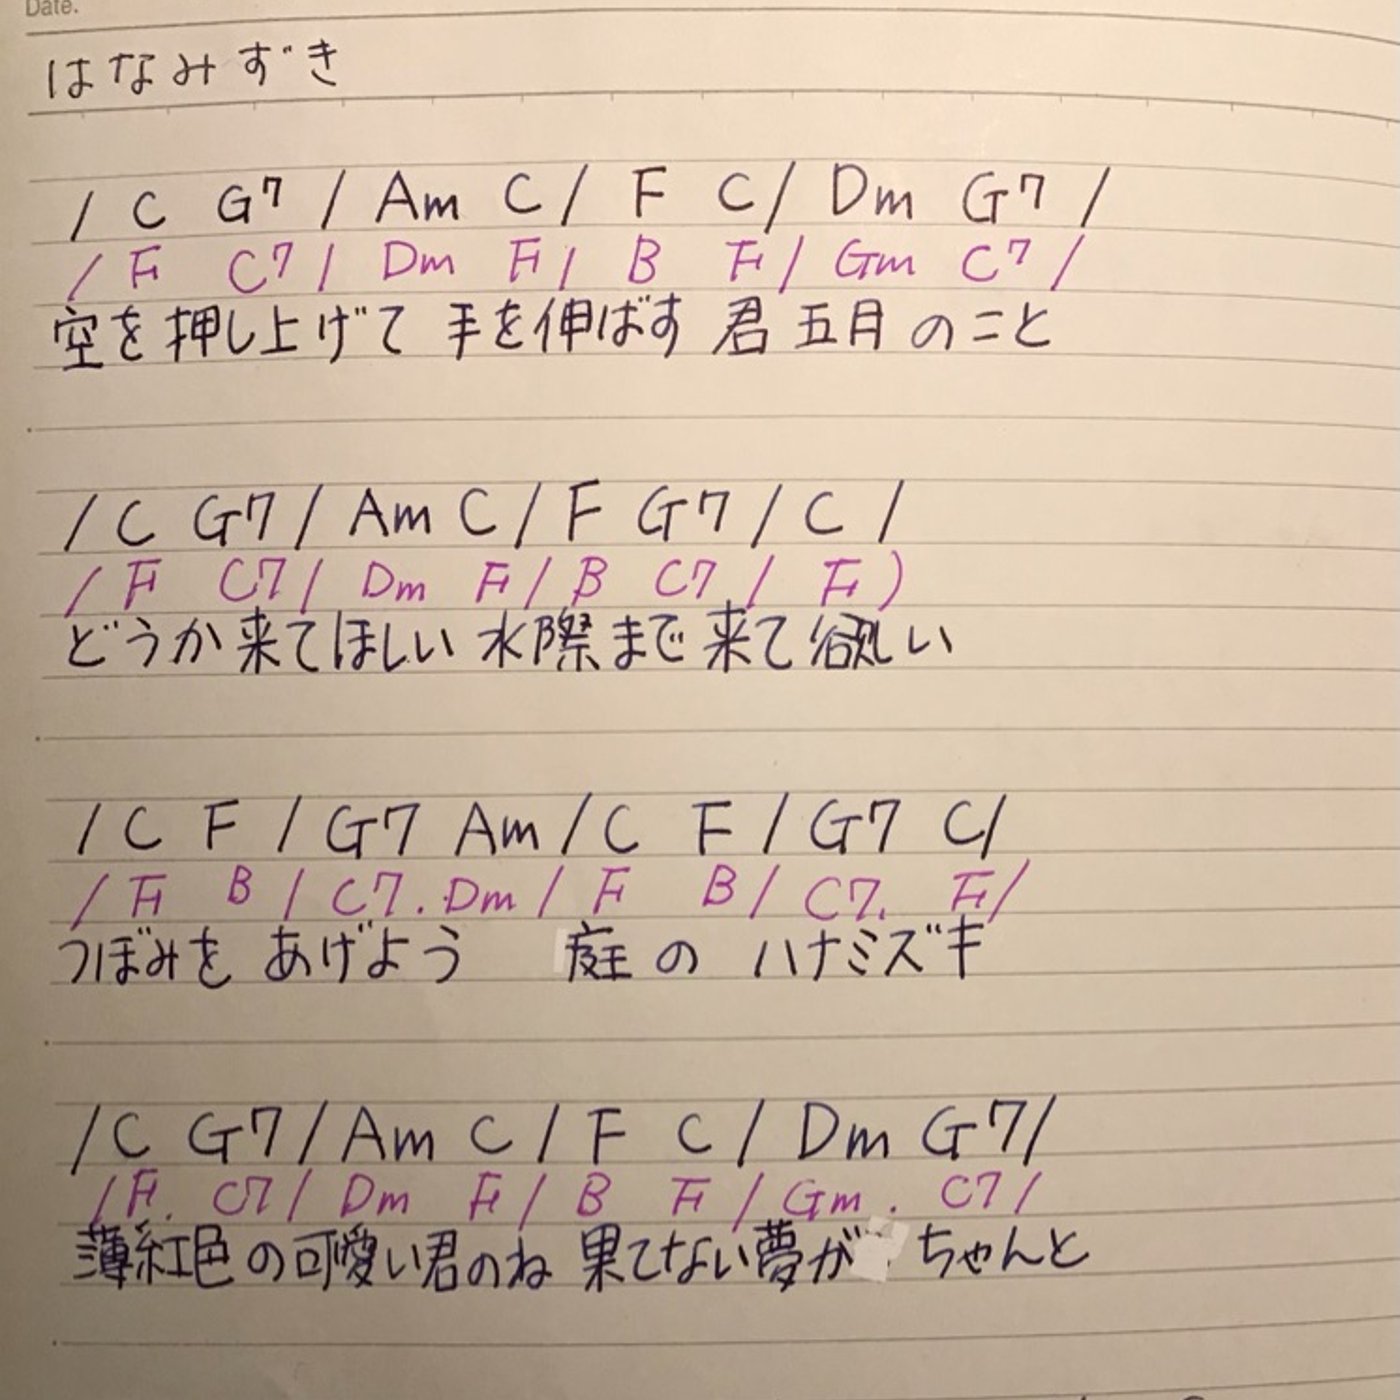 Date.
はなみずき
/ C G7 / Am C / F C / Dm G7 /
/ F C7 / Dm F / B F / Gm C7 /
空を押し上げて 手を伸ばす 君 五月のこと
/ C G7 / Am C / F G7 / C /
/ F C7 / Dm F / B C7 / F )
どうか来てほしい 水際まで来て欲しい
/ C F / G7 Am / C F / G7 C /
/ F B / C7. Dm / F B / C7. F /
つぼみを あげよう 庭の ハナミズキ
/ C G7 / Am C / F C / Dm G7 /
/ F. C7 / Dm F / B F / Gm. C7 /
薄紅色の可愛い君のね 果てない夢が ちゃんと